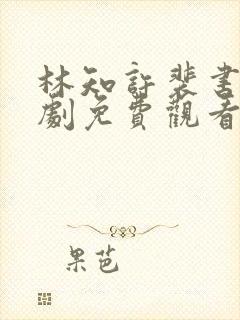 林知許裴書
劇免費觀看
果芭